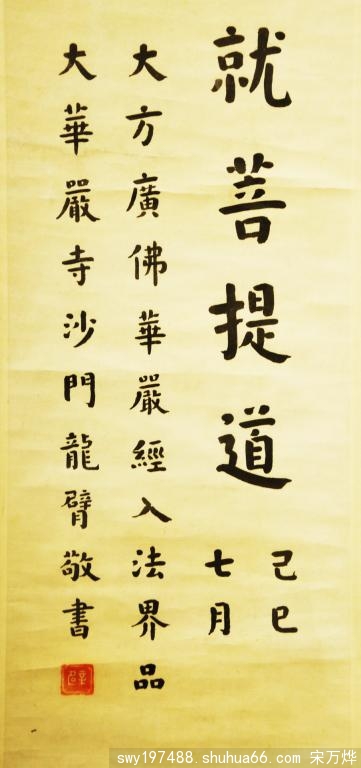 就菩提道
己巳
七月
大方廣佛華嚴經入法界品
大華嚴寺沙門龍臂敬書
swy197488.shuhua66.com 宋万烨